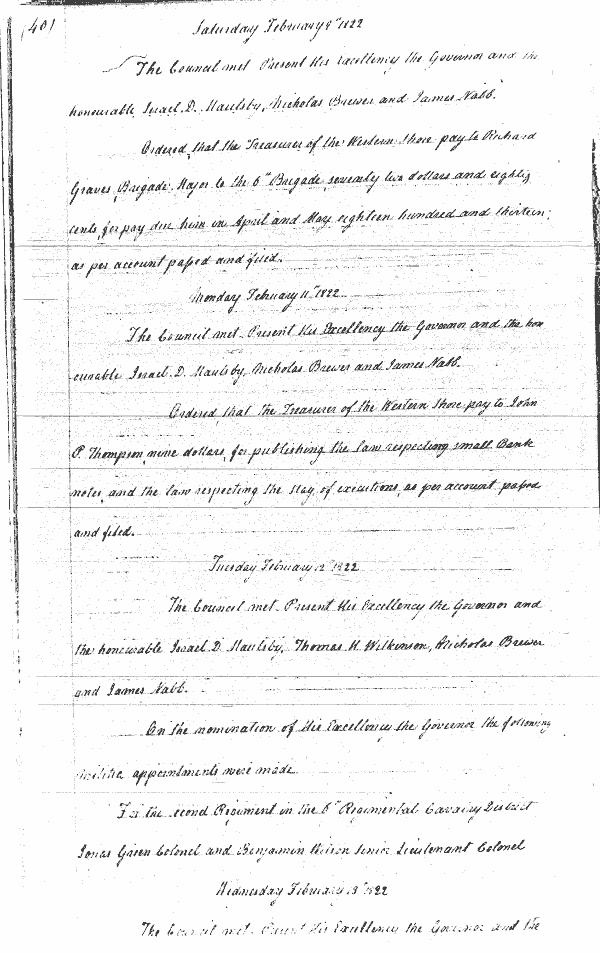 (401
Saturday February 9th 1822
The Council met Present His Excellency the Governor and the
honourable Israel D. Maulsby, Nicholas Brewer and James Nabb.
Ordered, that the Treasurer of the Western Shore pay to Richard
Graves, Brigade Major to the 6th Brigade seventy two dollars and eighty
cents, for pay due him in April and May eighteen hundred and thirteen;
as per account passed and filed.
Monday February 11th 1822
The Council met Present His Excellency the Governor and the hon
ourable Israel D. Maulsby, Nicholas Brewer and James Nabb.
Ordered, that the Treasurer of the Western Shore pay to John
P. Thompson nine dollars, for publishing the law respecting small Bank
notes, and the law respecting the stay of executions, as per account passed
and filed.
Tuesday February 12th 1822
The Council met Present His Excellency the Governor and
the honourable Israel D. Maulsby, Thomas H. Wilkinson, Nicholas Brewer
and James Nabb.
On the nomination of His Excellency the Governor the following
militia appointments were made
For the second Regiment in the 6th Regimental Cavalry District
Jonas Green Colonel and Benjamin Wilson Senior Lieutenant Colonel
Wednesday February 13th 1822
The Council met Present His Excellency the Governor and the